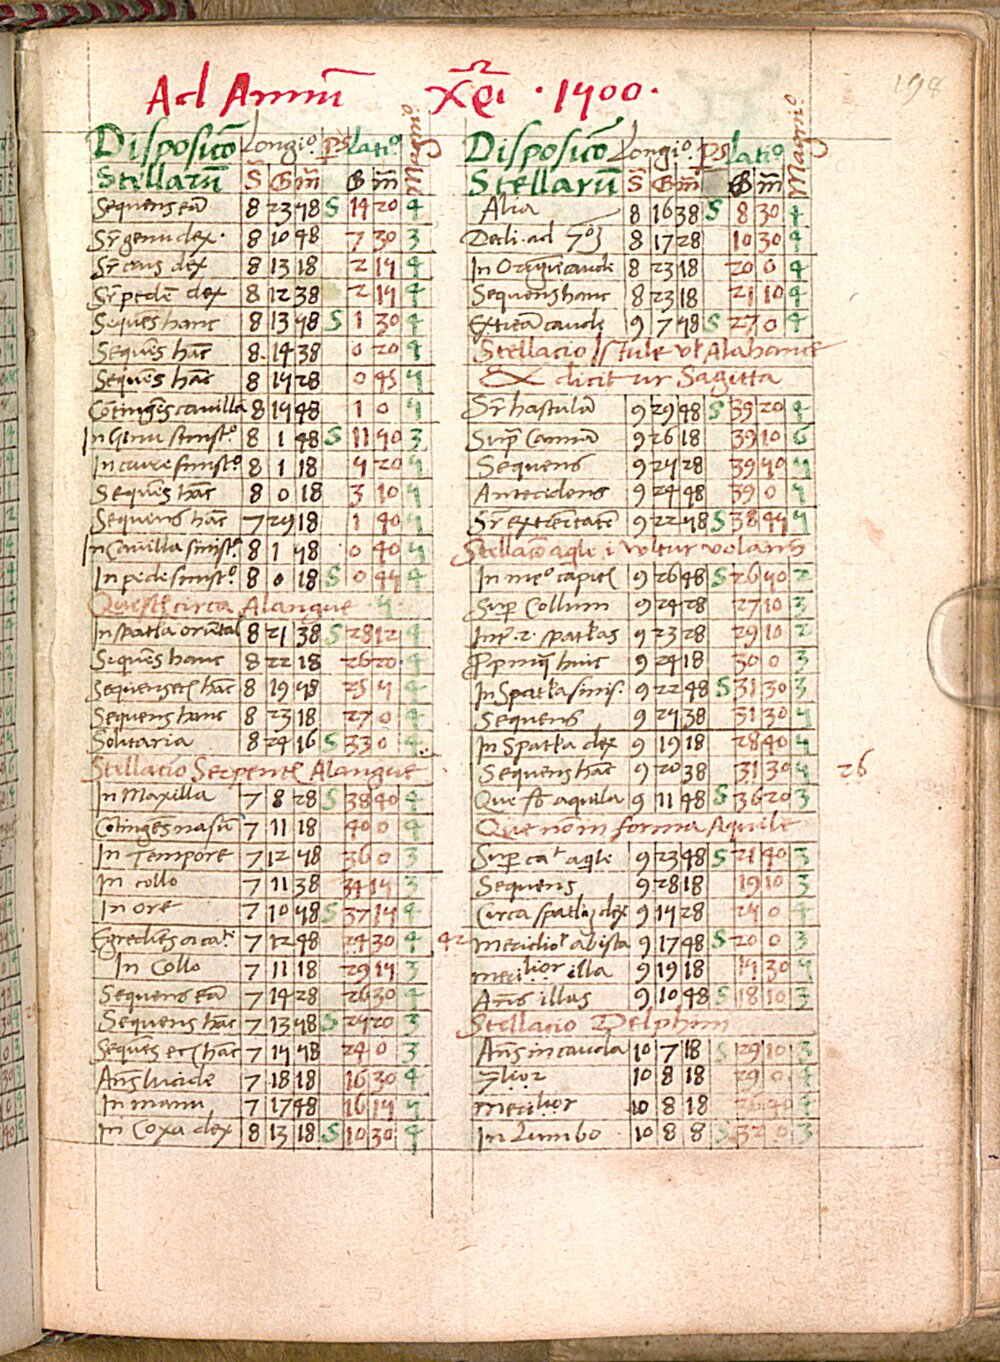 198
Ad Annum Xpi · 1500 ·
Disposicō Longiᵒ. ps Latiᵒ Magniᵒ
Stellarū S G m G m
Sequens eā 8 23 58 S 15 20 4
Sr genu dex · 8 10 48 7 30 3
Sr crus dex 8 13 18 2 15 4
Sr pedē dex 8 12 38 2 15 4
Sequēs hanc 8 13 58 S 1 30 4
Sequēs hāc 8 14 38 0 20 4
Sequēs hāc 8 15 28 0 45 5
Cōtingēs cavillā 8 15 48 1 0 5
In Genu sinistᵒ 8 1 48 S 11 50 3
In crure sinistᵒ 8 1 18 5 20 5
Sequēs hāc 8 0 18 3 10 5
Sequens hāc 7 29 18 1 40 5
In Cavilla sinistᵒ 8 1 58 0 40 5
In pede sinistᵒ 8 0 18 S 0 45 4
Que st circa Alangue · 5 ·
In spatła orientał 8 21 38 S 28 12 4
Sequēs hanc 8 22 18 26 20 4
Sequens et hāc 8 19 58 25 5 4
Sequens hanc 8 23 18 27 0 4
Solitaria 8 24 16 S 33 0 4
Stellacio Serpent Alangue
In Maxilla 7 8 28 S 38 40 4
Cōtingēs nasū 7 11 18 40 0 4
In Tempore 7 12 58 36 0 3
In collo 7 11 38 34 15 3
In ore 7 10 58 S 37 15 4
Egrediēs a caᵗ 7 12 48 25 30 4 42
In Collo 7 11 18 29 15 3
Sequens eā 7 14 28 26 30 4
Sequens hāc 7 13 58 S 25 20 3
Sequēs et hāc 7 15 58 24 0 3
Añs lucide 7 18 18 16 30 4
In manu 7 17 48 16 15 5
In Coxa dex 8 13 18 S 10 30 4
Disposicō Longiᵒ. ps Latiᵒ Magniᵒ
Stellarū S G m G m
Alia 8 16 38 S 8 30 4
Decli · ad 8 17 28 10 30 4
In caude 8 23 18 20 0 4
Sequens hanc 8 23 18 21 10 4
Extreā caude 9 7 58 S 27 0 4
Stellacio Istule vł Alahance
Et dicitur Sagitta
Sr hastulā 9 29 48 S 39 20 4
Supra Cannā 9 26 18 39 10 6
Sequens 9 25 28 39 50 5
Antecidens 9 24 48 39 0 5
Sr extremitatē 9 22 58 S 38 45 5
Stellacō aqle i vultur volans
In meᵒ capitē 9 26 48 S 26 50 2
Sup Collum 9 24 28 27 10 3
In p · 2 · spatłas 9 23 28 29 10 2
Ppinq huic 9 24 18 30 0 3
In Spatła sinis · 9 22 48 S 31 30 3
Sequens 9 25 38 31 30 5
In Spatła dex 9 19 18 28 40 5
Sequens hāc 9 20 38 31 30 5 26
Que sb aquila 9 11 48 S 36 20 3
Que nō in forma Aquile
Sup caᵗ aqle 9 23 48 S 21 40 3
Sequens 9 28 18 19 10 3
Circa spatłą dex 9 15 28 25 0 4
Meridioʳ ab ista 9 17 48 S 20 0 3
meridior illa 9 19 18 15 30 5
Añs illas 9 10 48 S 18 10 3
Stellacio Delphini
Añs in cauda 10 7 18 S 29 10 3
10 8 18 29 0 4
meridior 10 8 18 26 40 4
In Lumbo 10 8 8 S 32 0 3